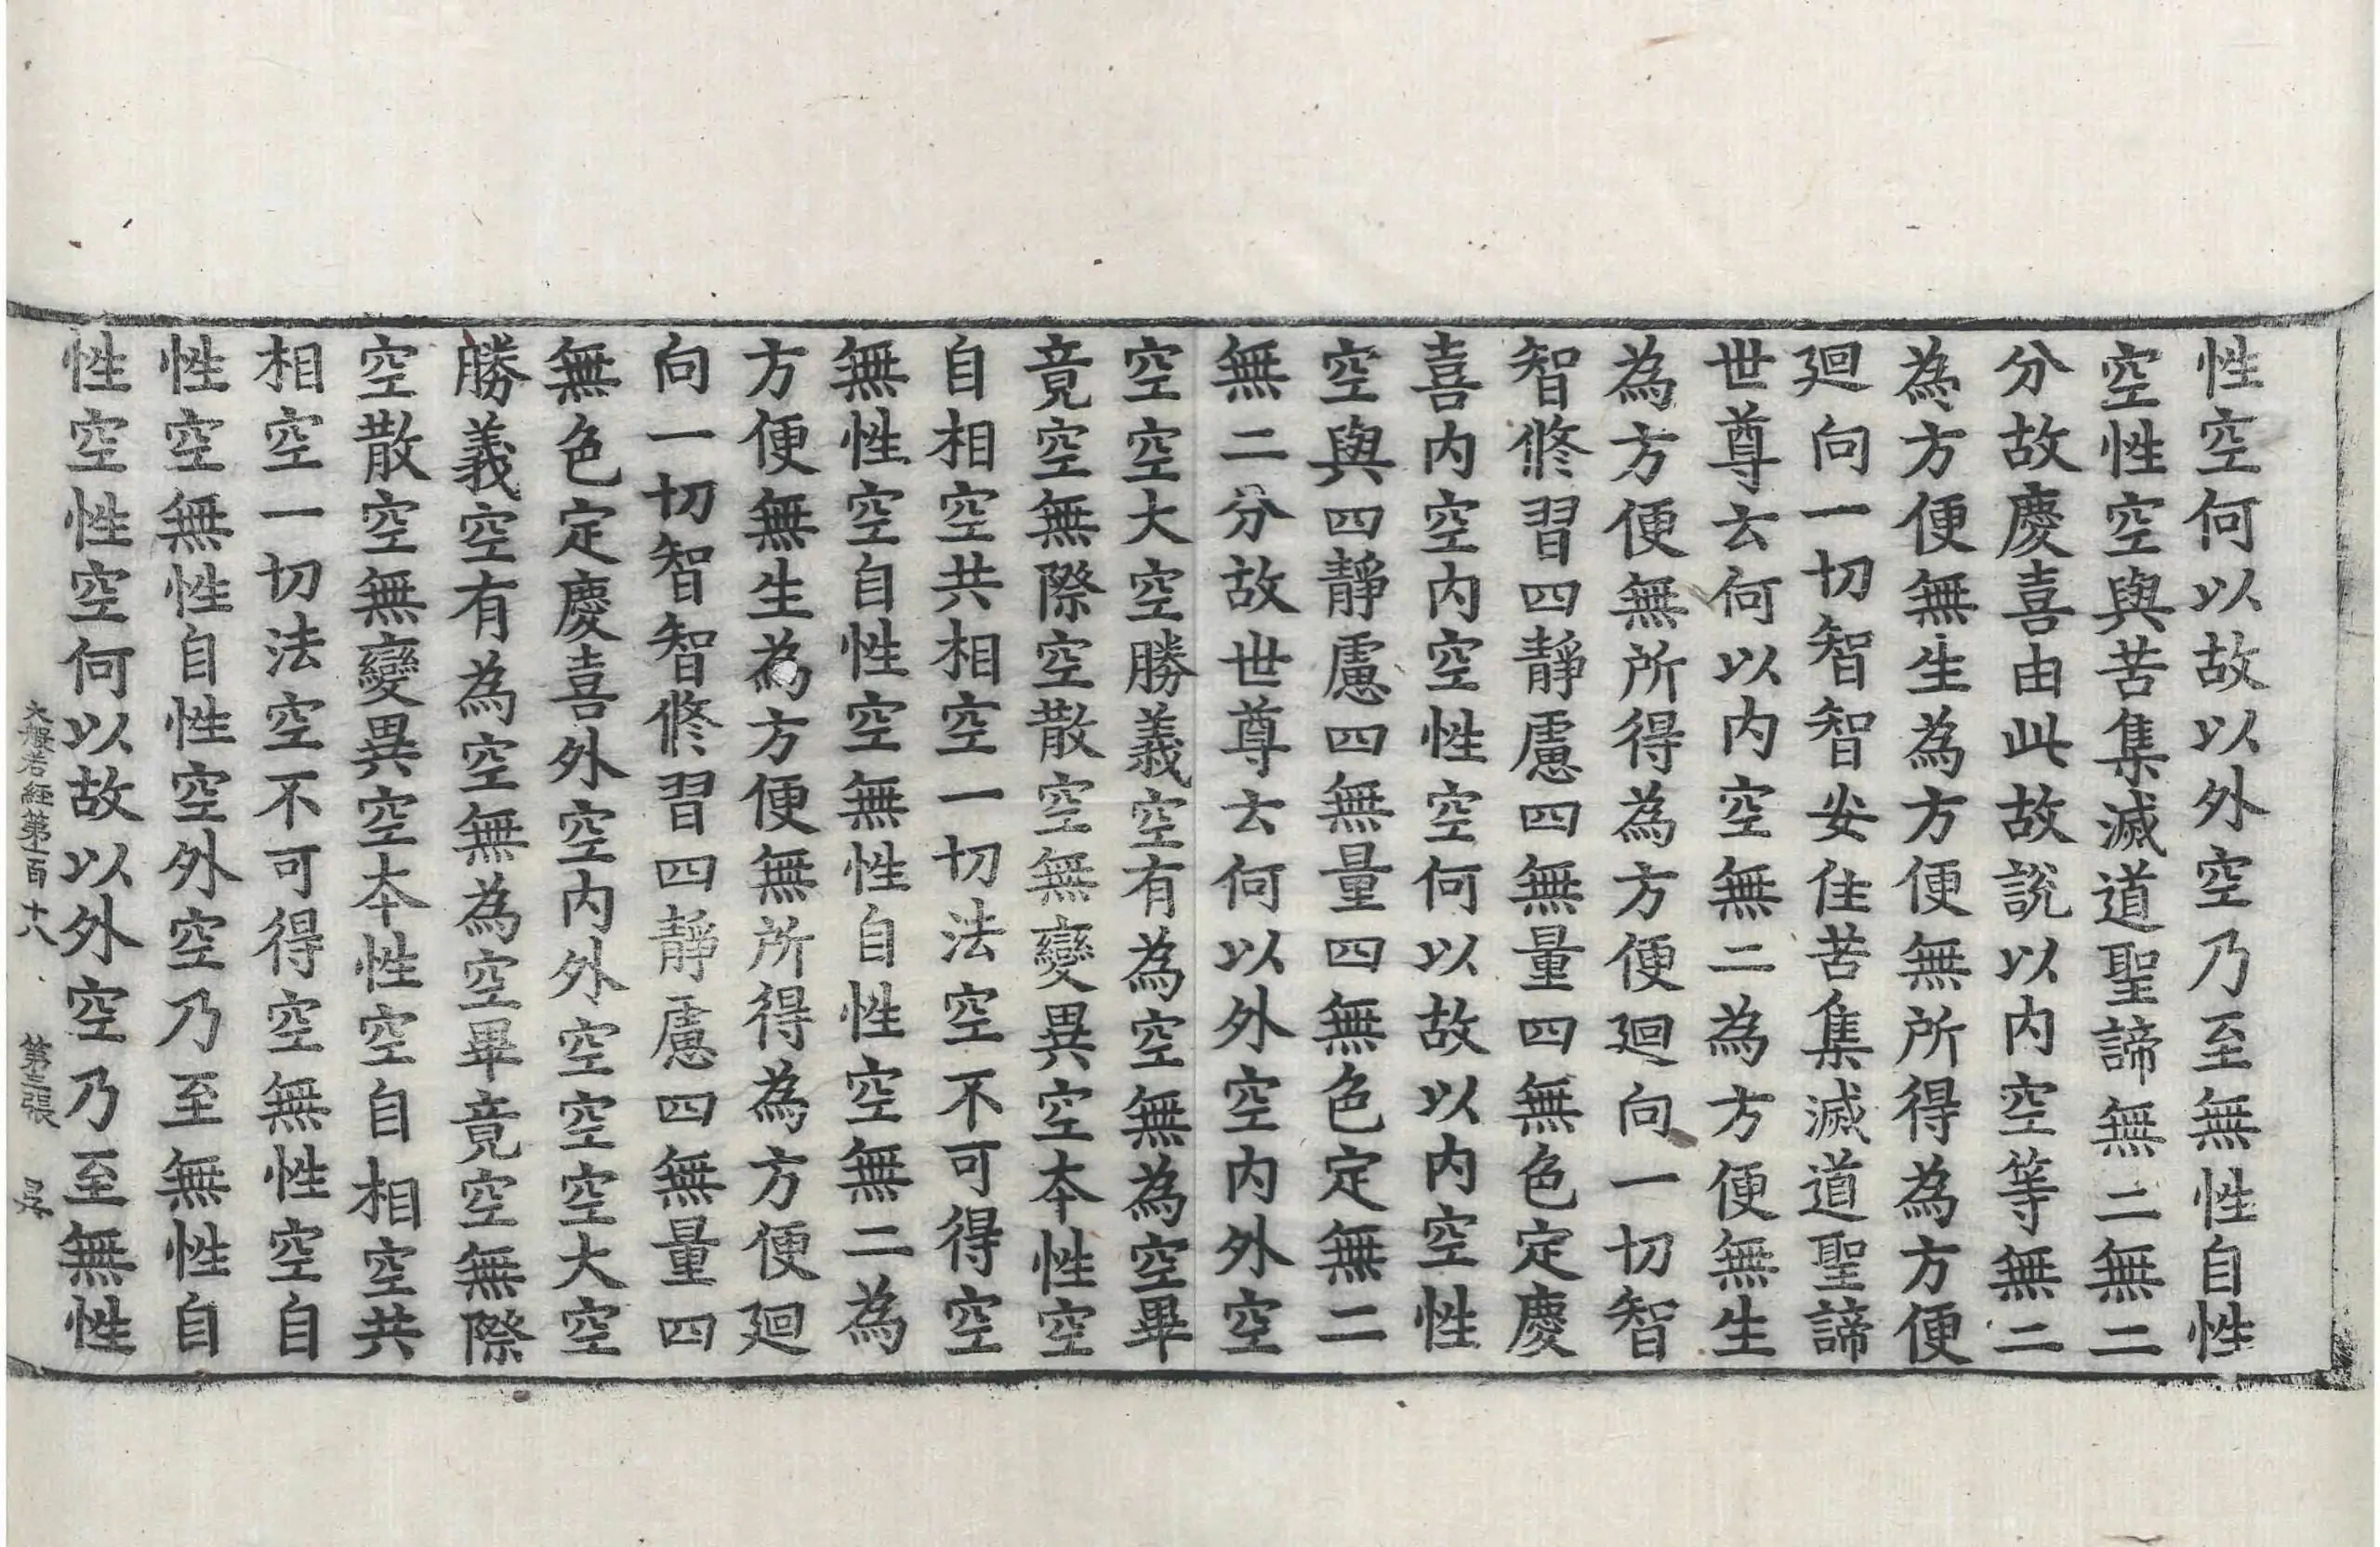 性空何以故以外空乃至無性自性
空性空與苦集滅道聖諦無二無二
分故慶喜由此故說以内空等無二
為方便無生為方便無所得為方便
廻向一切智智安住苦集滅道聖諦
世尊云何以内空無二為方便無生
為方便無所得為方便廻向一切智
智修習四靜慮四無量四無色定慶
喜内空内空性空何以故以内空性
空與四靜慮四無量四無色定無二
無二分故世尊云何以外空内外空
空空大空勝義空有為空無為空畢
竟空無際空散空無變異空本性空
自相空共相空一切法空不可得空
無性空自性空無性自性空無二為
方便無生為方便無所得為方便廻
向一切智智修習四靜慮四無量四
無色定慶喜外空内外空空空大空
勝義空有為空無為空畢竟空無際
空散空無變異空本性空自相空共
相空一切法空不可得空無性空自
性空無性自性空外空乃至無性自
性空性空何以故以外空乃至無性
大般若經第一百十八 第三張